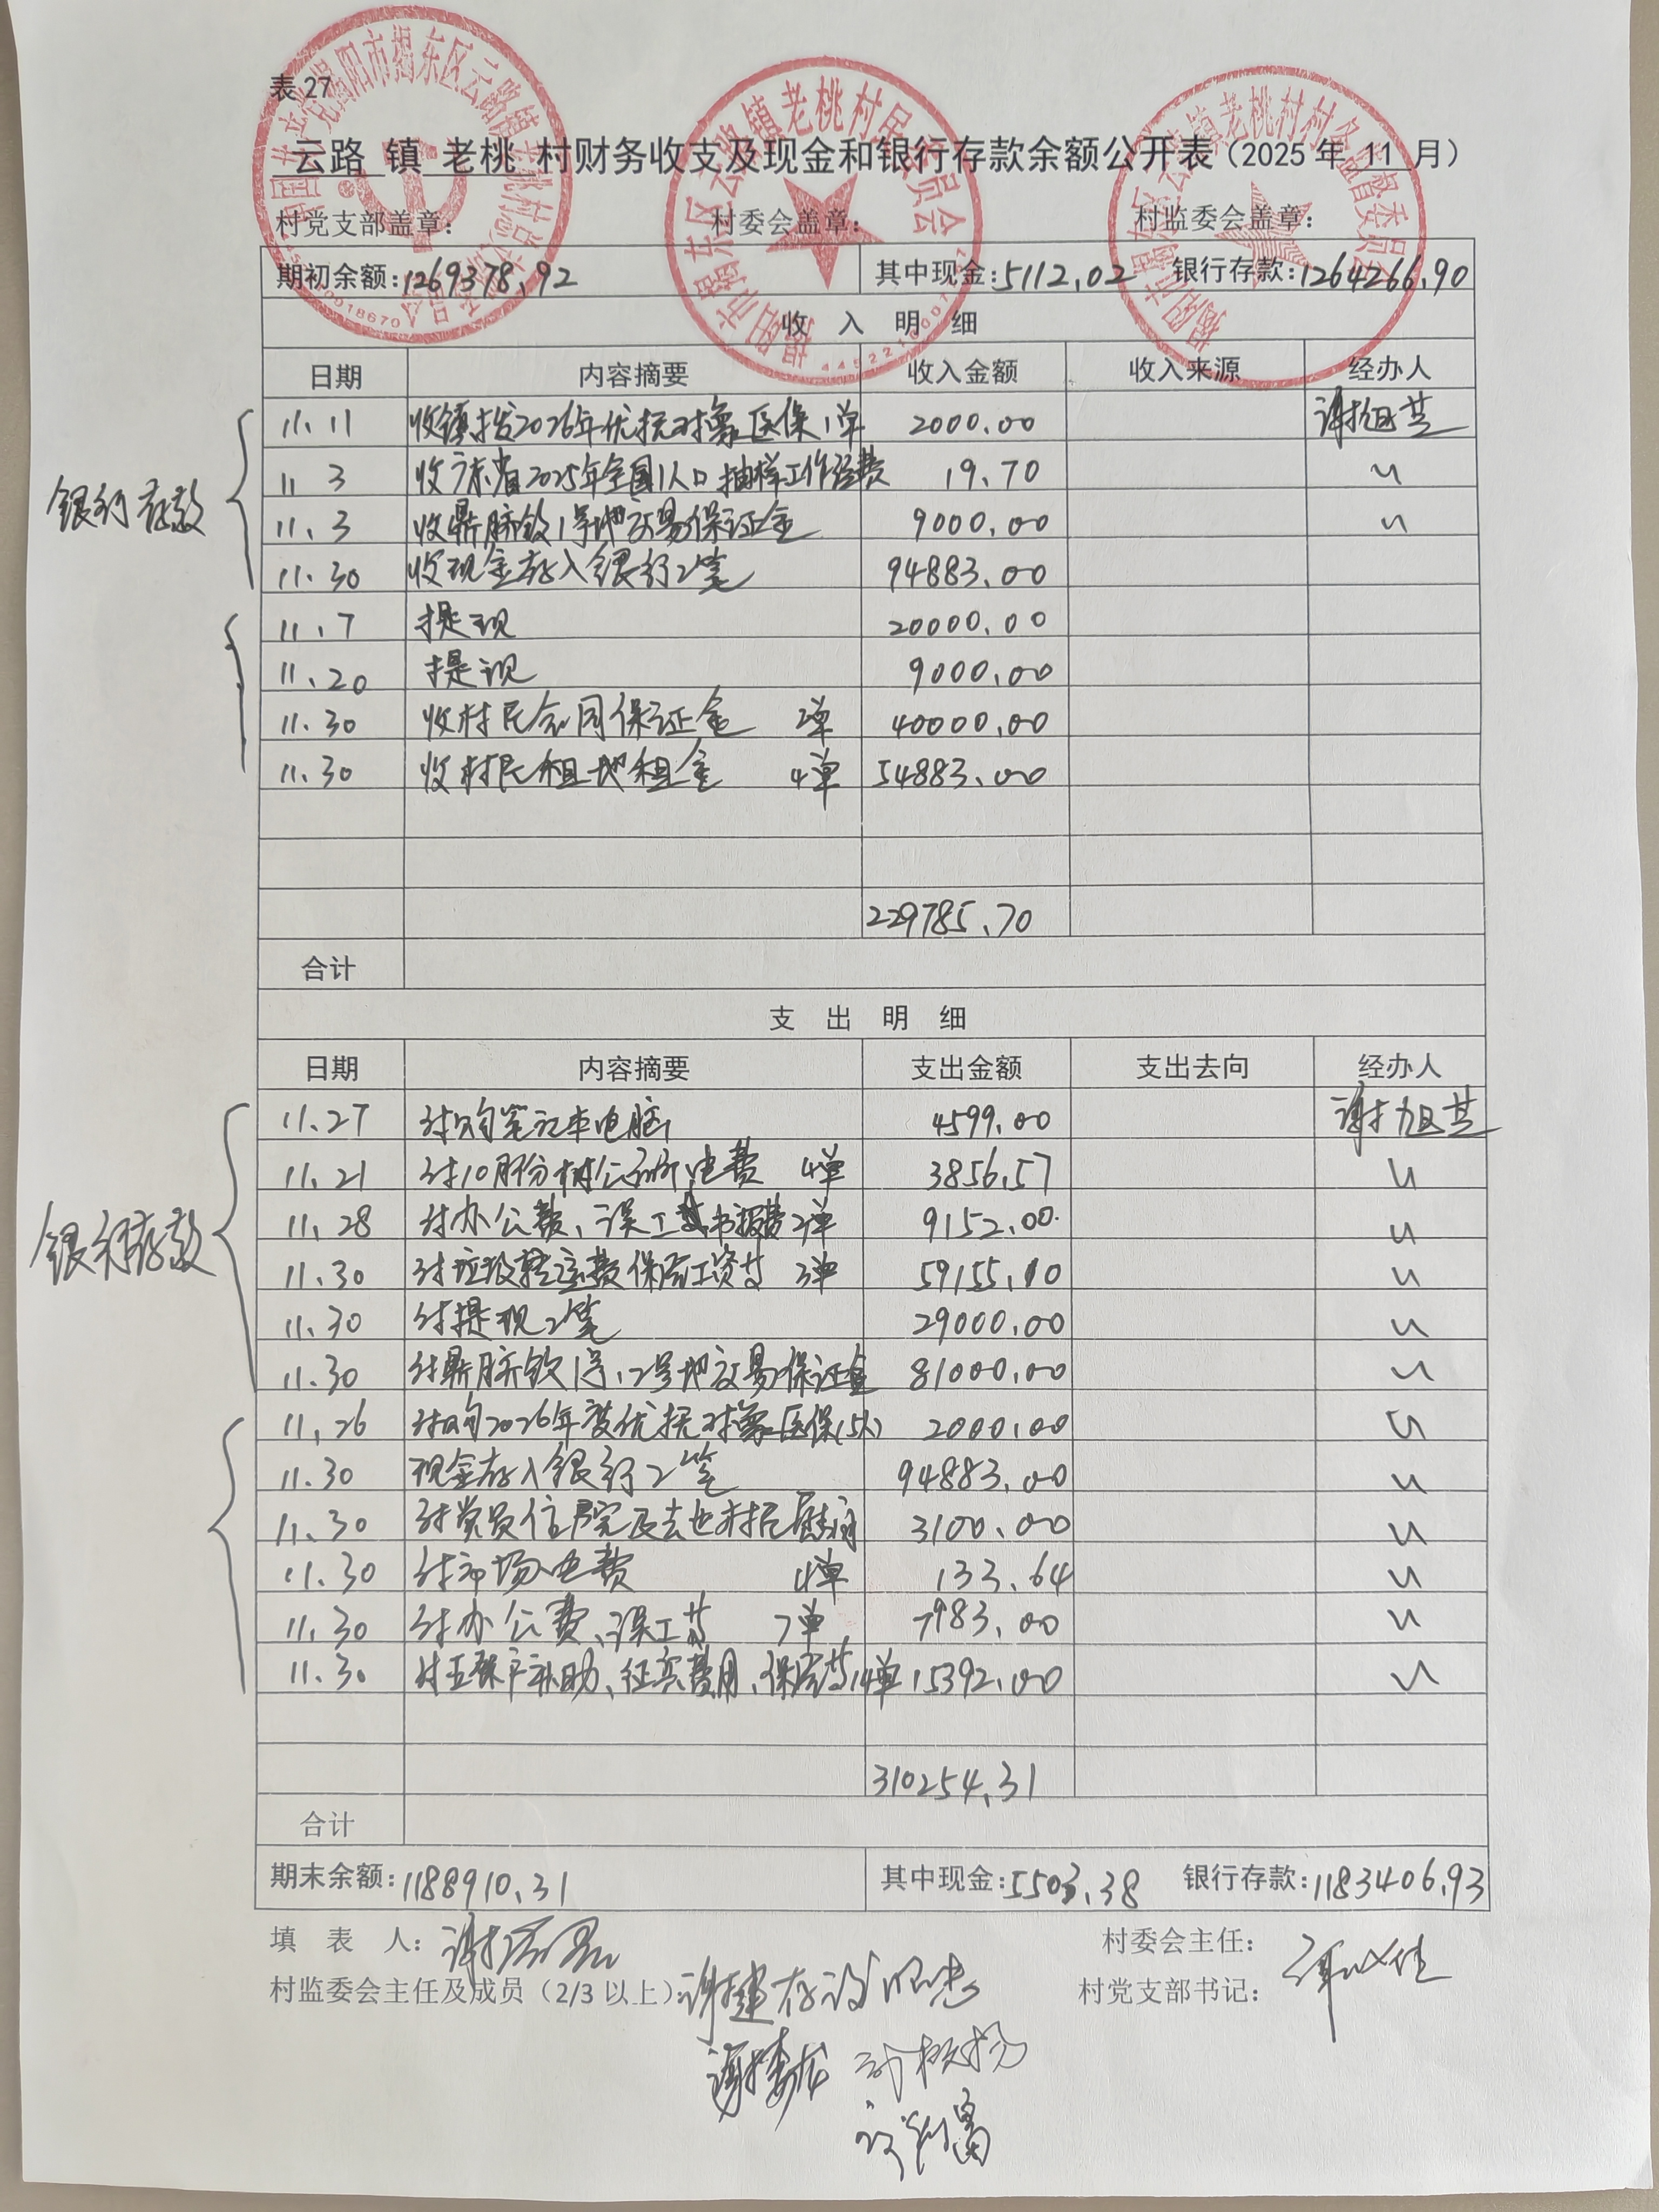 表 27
云路 镇 老桃 村财务收支及现金和银行存款余额公开表（2025 年 11 月）
村党支部盖章： 村委会盖章： 村监委会盖章：
期初余额：1269378.92 其中现金：5112.02 银行存款：1264266.90
收 入 明 细
日期 内容摘要 收入金额 收入来源 经办人
银行存款
11.11 收镇拨2026年优抚对象医保1单 2000.00 谢旭芝
11 3 收广东省2025年全国人口抽样工作经费 19.70 〃
11.3 收鼎脐钦1号地交易保证金 9000.00 〃
11.30 收现金存入银行2笔 94883.00
11.7 提现 20000.00
11.20 提现 9000.00
11.30 收村民合同保证金 2单 40000.00
11.30 收村民租地租金 4单 54883.00
229785.70
合计
支 出 明 细
日期 内容摘要 支出金额 支出去向 经办人
银行存款
11.27 付购笔记本电脑 4599.00 谢旭芝
11.21 付10月份村公所电费 4单 3856.57 〃
11.28 付办公费、误工书报费2单 9152.00 〃
11.30 付垃圾转运费保洁工资等 3单 59155.10 〃
11.30 付提现2笔 29000.00 〃
11.30 付鼎脐钦1号、2号地交易保证金 81000.00 〃
11.26 付购2026年度优抚对象医保(5人) 2000.00 〃
11.30 现金存入银行2笔 94883.00 〃
11.30 付党员住院及去世村民慰问 3100.00 〃
11.30 付市场电费 4单 133.64 〃
11.30 付办公费、误工等 7单 7983.00 〃
11.30 付五保户补助、征兵费用、保洁等14单 15392.00 〃
310254.31
合计
期末余额：1188910.31 其中现金：5503.38 银行存款：1183406.93
填 表 人： 村委会主任：
村监委会主任及成员（2/3 以上）： 村党支部书记：